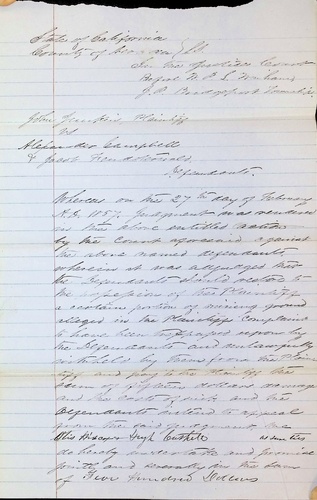 State of California
County of
In the Justices Court
Before
J.P. Bridgeport Township
John Franklin Plaintiff
vs
Alexander Campbell
& Jacob
Defendants.
Whereas on the 27th day of February
A.D. 1857, judgment was rendered
in the above entitled action
by the Court aforesaid against
the above named defendants
wherein it was adjudged that
the Defendants should restore to
the possession of the Plaintiff
a certain portion of mining ground
alleged in the Plaintiffs Complaint
to have been trespassed upon by
the Defendants and unlawfully
withheld by them from the Plain
tiff and pay to the Plaintiff the
sum of fifteen dollars damage
and the costs of suit and the
Defendants intend to appeal
from the said judgment. We
Hugh as sureties
do hereby undertake and promise
jointly and severally in the sum
of Four Hundred Dollars